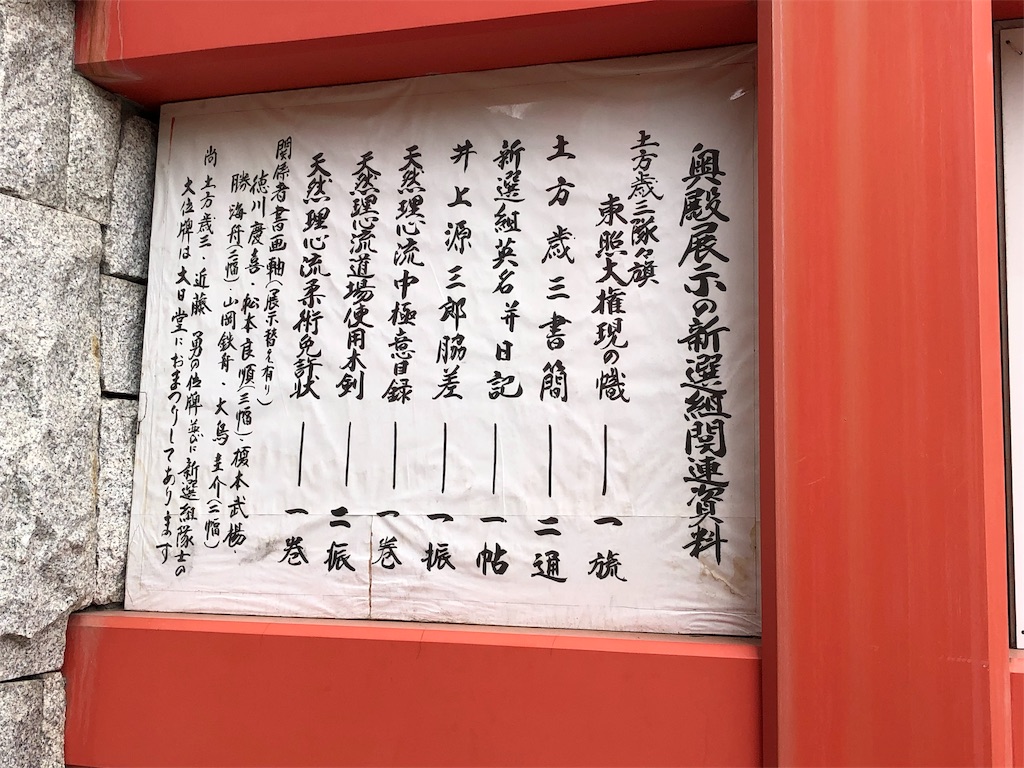 奥殿展示の新選組関連資料
土方歳三隊々旗
東照大権現の幟 ― 一旒
土方歳三書簡 ― 二通
新選組英名并日記 ― 一帖
井上源三郎脇差 ― 一振
天然理心流中極意目録 ― 一巻
天然理心流道場使用木剣 ― 二振
天然理心流柔術免許状 ― 一巻
関係者書画軸(展示替え有り)
徳川慶喜・松本良順(三幅)・榎本武揚・
勝海舟(二幅)山岡鉄舟・大鳥圭介(二幅)
尚土方歳三、近藤勇の位牌並びに新選組隊士の
大位牌は大日堂におまつりしてあります